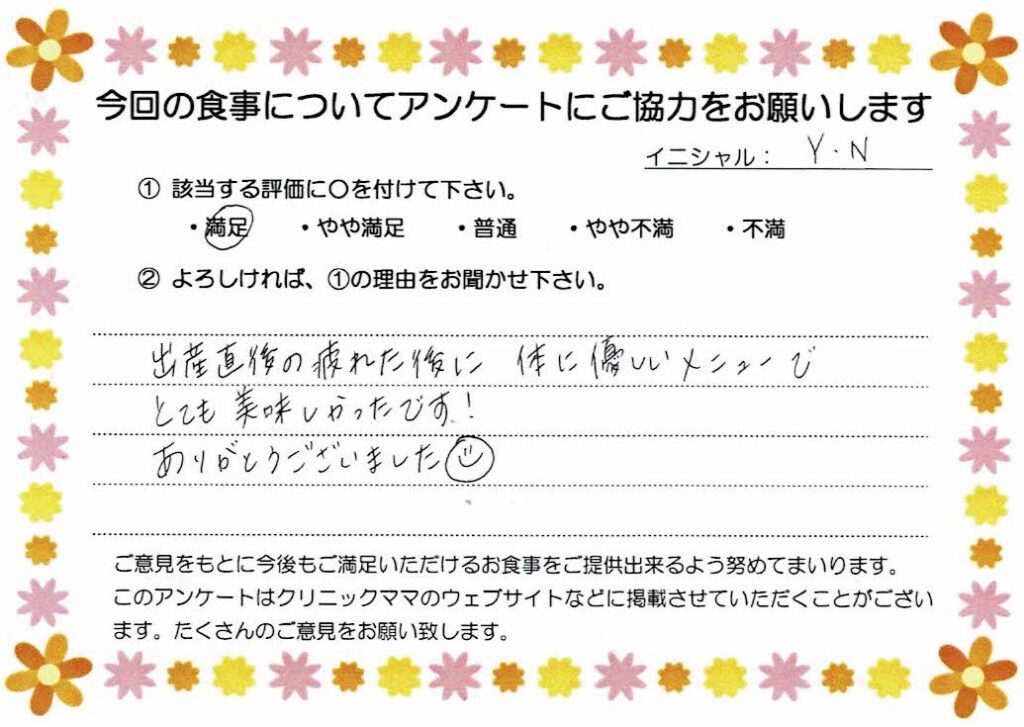 今回の食事についてアンケートにご協力をお願いします
イニシャル： Y.N
① 該当する評価に〇を付けて下さい。
・満足 ・やや満足 ・普通 ・やや不満 ・不満
② よろしければ、①の理由をお聞かせ下さい。
出産直後の疲れた後に 体に優しいメニューで
とても美味しかったです！
ありがとうございました
ご意見をもとに今後もご満足いただけるお食事をご提供出来るよう努めてまいります。
このアンケートはクリニックママのウェブサイトなどに掲載させていただくことがござい
ます。たくさんのご意見をお願い致します。